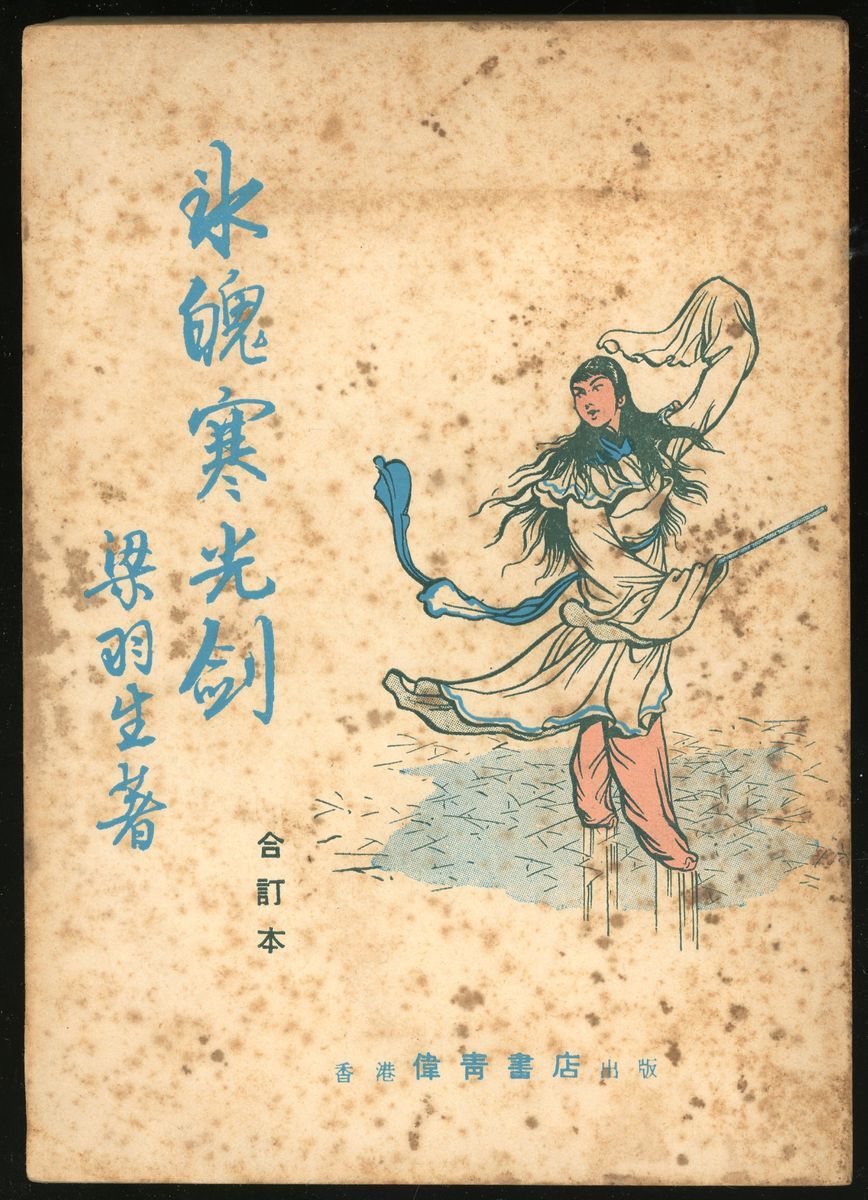 冰魄寒光劍
梁羽生著
合訂本
香港偉青書店出版